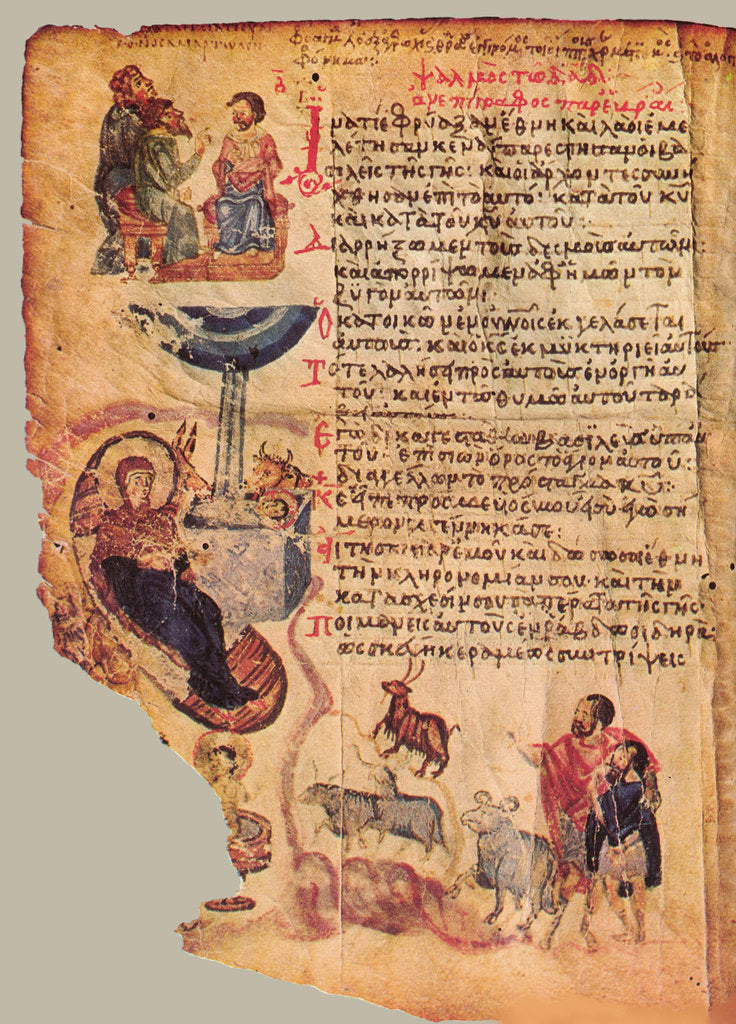 ψαλμὸς τῶ δαδ
ἀνεπίγραφος παρ ἑβραί
Ἱνα τί ἐφρύαξαν ἔθνη καὶ λαοὶ ἐμε
λέτησαν κενά· παρέστησαν οἱ βα
σιλεῖς τῆς γῆς· καὶ οἱ ἄρχοντες συνή
χθησαν ἐπὶ τὸ αυτό· κατὰ τοῦ κυ
καὶ κατὰ τοῦ χυ αὐτοῦ:
Διαρρήξωμεν τοὺς δεσμοὺς αὐτῶν:
καὶ ἀπορρίψωμεν ἀφ ἡμῶν τὸν
ζυγὸν αὐτῶν:
Ὁ κατοικῶν ἐν οὐνοῖς ἐκγελάσεται
αὐτούς· καὶ ὁ κς ἐκμυκτηριεῖ αὐτούς
Τότε λαλήσει πρὸς αὐτοὺς ἐν ὀργῆ αὐ
τοῦ: καὶ ἐν τῶ θυμῶ αὐτοῦ ταρά
ξει αὐτούς
Ἐγὼ δὲ κατεστάθην βασιλεὺς ὑπ αὐ
τοῦ· ἐπὶ σιὼν ὄρος τὸ ἅγιον αὐτοῦ:
διαγγέλλων τὸ πρόσταγμα κυ:
Κς εἶπε πρὸς μέ υς μου εἶ σὺ ἐγὼ σή
μερον γεγέννηκά σε:
Αἴτησαι παρ ἐμοῦ καὶ δώσω σοι ἔθνη
τὴν κληρονομίαν σου· καὶ τὴν
κατάσχεσίν σου τὰ πέρατα τῆς γῆς·
Ποιμανεῖς αὐτοὺς ἐν ῥάβδω σιδηρᾶ·
ὡς σκεύη κεραμέως συντρίψεις